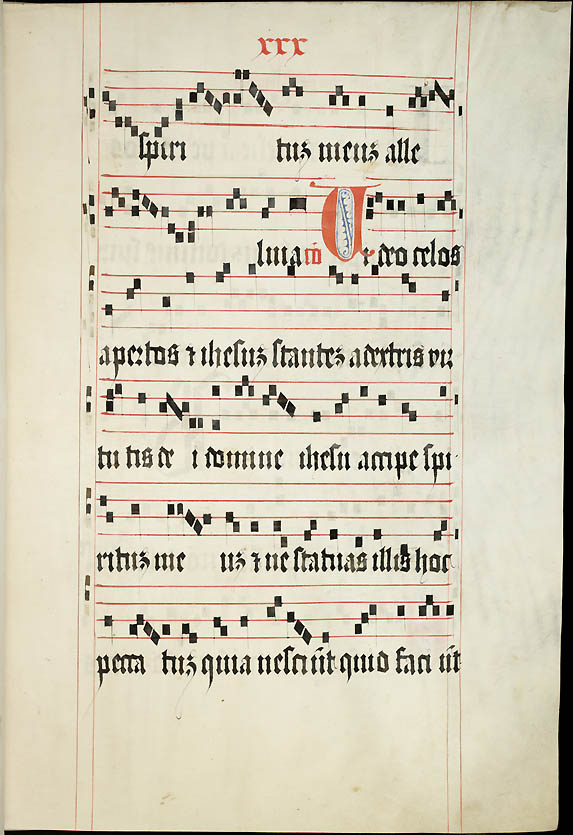 xxx
spiri tus meus alle
luia cō U i deo celos
apertos ⁊ ihesus stantes a dextris vir
tu tis de i domine ihesu accipe spi
ritus me us ⁊ ne statuas illis hoc
pecca tus quia nesciūt quid faci ūt